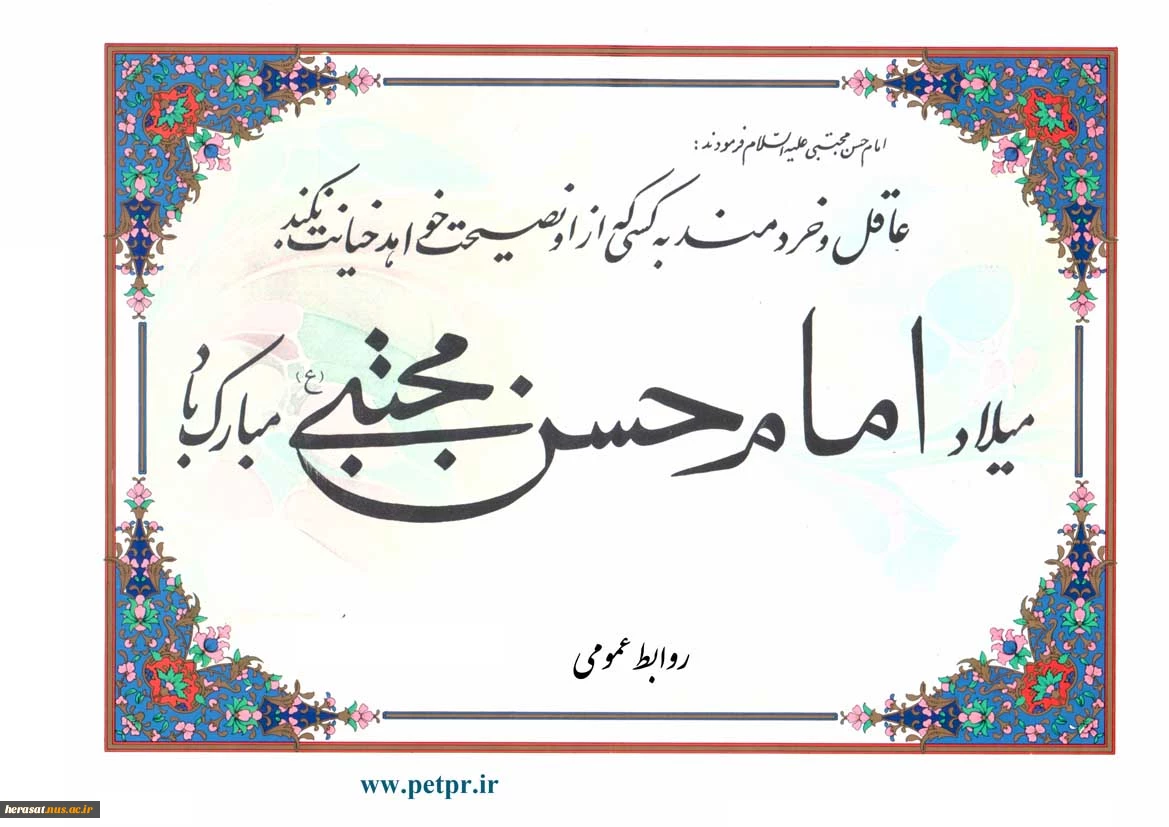 امام حسن مجتبی علیه السلام فرمودند:
عاقل و خردمند به کسی که از او نصیحت خواهد خیانت نکند.
میلاد امام حسن مجتبی (ع) مبارک باد
روابط عمومی
ww.petpr.ir
herasat.nus.ac.ir